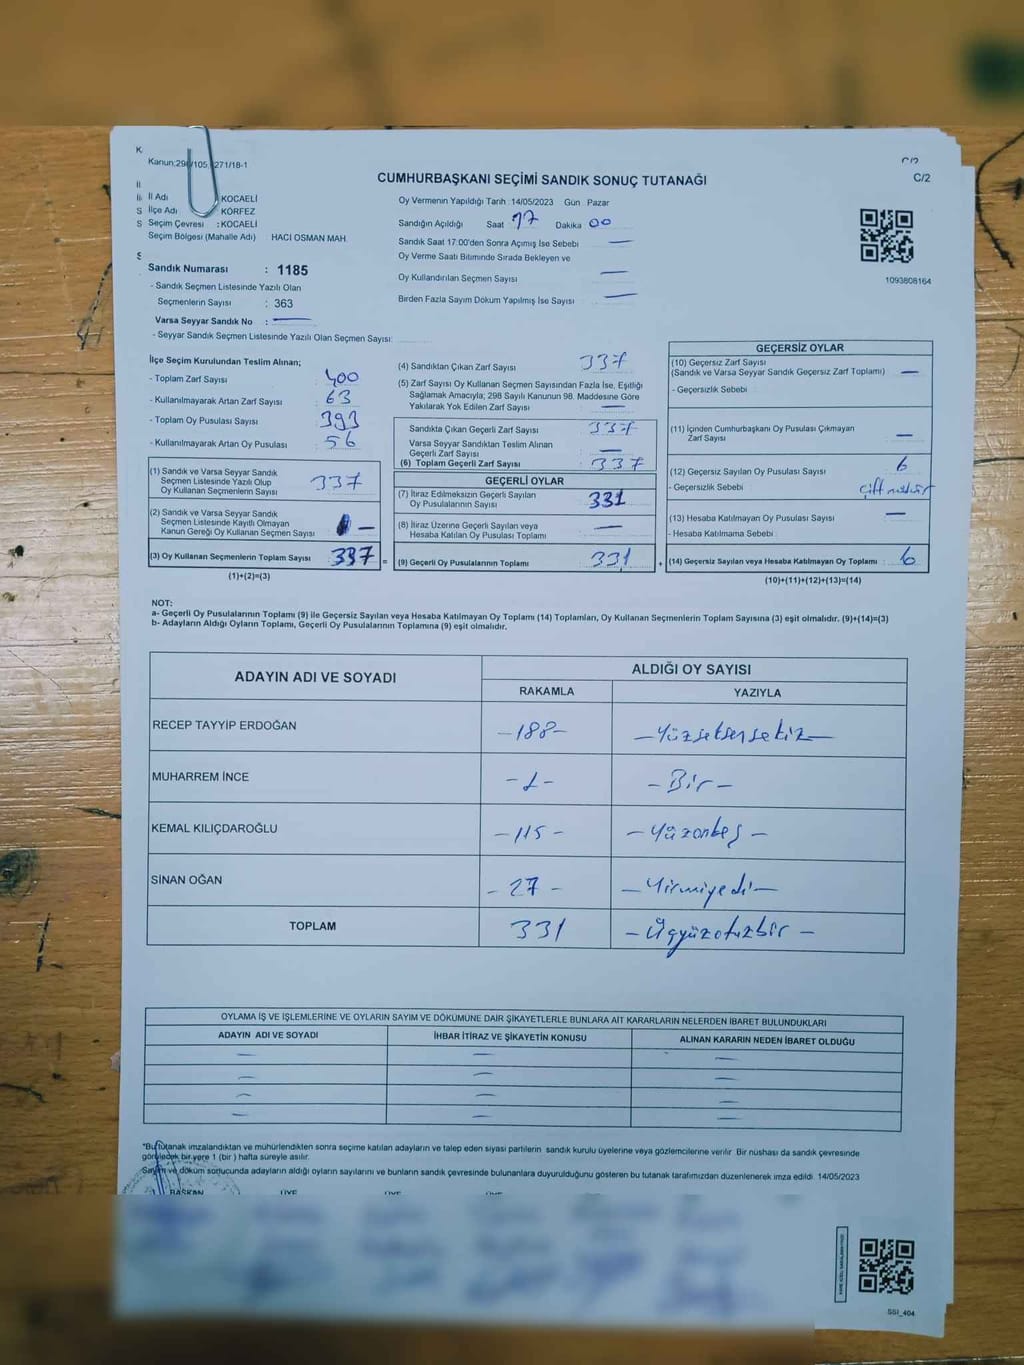 Kanun:298/105, 271/18-1
C/2
C/2
CUMHURBAŞKANI SEÇİMİ SANDIK SONUÇ TUTANAĞI
İl Adı : KOCAELİ
İlçe Adı : KÖRFEZ
Seçim Çevresi : KOCAELİ
Seçim Bölgesi (Mahalle Adı) HACI OSMAN MAH.
Sandık Numarası : 1185
- Sandık Seçmen Listesinde Yazılı Olan
Seçmenlerin Sayısı : 363
Varsa Seyyar Sandık No : —
- Seyyar Sandık Seçmen Listesinde Yazılı Olan Seçmen Sayısı:
Oy Vermenin Yapıldığı Tarih :14/05/2023 Gün : Pazar
Sandığın Açıldığı Saat 17 Dakika 00
Sandık Saat 17:00'den Sonra Açımış İse Sebebi —
Oy Verme Saati Bitiminde Sırada Bekleyen ve
Oy Kullandırılan Seçmen Sayısı —
Birden Fazla Sayım Döküm Yapılmış İse Sayısı —
1093808164
İlçe Seçim Kurulundan Teslim Alınan;
- Toplam Zarf Sayısı : 400
- Kullanılmayarak Artan Zarf Sayısı : 63
- Toplam Oy Pusulası Sayısı : 393
- Kullanılmayarak Artan Oy Pusulası : 56
(1) Sandık ve Varsa Seyyar Sandık
Seçmen Listesinde Yazılı Olup
Oy Kullanan Seçmenlerin Sayısı : 337
(2) Sandık ve Varsa Seyyar Sandık
Seçmen Listesinde Kayıtlı Olmayan
Kanun Gereği Oy Kullanan Seçmen Sayısı : —
(3) Oy Kullanan Seçmenlerin Toplam Sayısı : 337 =
(1)+(2)=(3)
(4) Sandıktan Çıkan Zarf Sayısı : 337
(5) Zarf Sayısı Oy Kullanan Seçmen Sayısından Fazla İse, Eşitliği
Sağlamak Amacıyla; 298 Sayılı Kanunun 98. Maddesine Göre
Yakılarak Yok Edilen Zarf Sayısı : —
Sandıkta Çıkan Geçerli Zarf Sayısı : 337
Varsa Seyyar Sandıktan Teslim Alınan
Geçerli Zarf Sayısı : —
(6) Toplam Geçerli Zarf Sayısı : 337
GEÇERLİ OYLAR
(7) İtiraz Edilmeksizin Geçerli Sayılan
Oy Pusulalarının Sayısı : 331
(8) İtiraz Üzerine Geçerli Sayılan veya
Hesaba Katılan Oy Pusulası Toplamı : —
(9) Geçerli Oy Pusulalarının Toplamı : 331 +
GEÇERSİZ OYLAR
(10) Geçersiz Zarf Sayısı
(Sandık ve Varsa Seyyar Sandık Geçersiz Zarf Toplamı) : —
- Geçersizlik Sebebi :
(11) İçinden Cumhurbaşkanı Oy Pusulası Çıkmayan
Zarf Sayısı : —
(12) Geçersiz Sayılan Oy Pusulası Sayısı : 6
- Geçersizlik Sebebi : Çift mühür
(13) Hesaba Katılmayan Oy Pusulası Sayısı : —
- Hesaba Katılmama Sebebi :
(14) Geçersiz Sayılan veya Hesaba Katılmayan Oy Toplamı : 6
(10)+(11)+(12)+(13)=(14)
NOT:
a- Geçerli Oy Pusulalarının Toplamı (9) ile Geçersiz Sayılan veya Hesaba Katılmayan Oy Toplamı (14) Toplamları, Oy Kullanan Seçmenlerin Toplam Sayısına (3) eşit olmalıdır. (9)+(14)=(3)
b- Adayların Aldığı Oyların Toplamı, Geçerli Oy Pusulalarının Toplamına (9) eşit olmalıdır.
ADAYIN ADI VE SOYADI ALDIĞI OY SAYISI
RAKAMLA YAZIYLA
RECEP TAYYİP ERDOĞAN -188- -Yüzseksensekiz-
MUHARREM İNCE -1- -Bir-
KEMAL KILIÇDAROĞLU -115- -Yüzonbeş-
SİNAN OĞAN -27- -Yirmiyedi-
TOPLAM 331 -Üçyüzotuzbir-
OYLAMA İŞ VE İŞLEMLERİNE VE OYLARIN SAYIM VE DÖKÜMÜNE DAİR ŞİKAYETLERLE BUNLARA AİT KARARLARIN NELERDEN İBARET BULUNDUKLARI
ADAYIN ADI VE SOYADI İHBAR İTİRAZ VE ŞİKAYETİN KONUSU ALINAN KARARIN NEDEN İBARET OLDUĞU
— — —
— — —
— — —
— — —
*Bu tutanak imzalandıktan ve mühürlendikten sonra seçime katılan adayların ve talep eden siyasi partilerin sandık kurulu üyelerine veya gözlemcilerine verilir. Bir nüshası da sandık çevresinde
görülecek bir yere 1 (bir ) hafta süreyle asılır.
Sayım ve döküm sonucunda adayların aldığı oyların sayılarını ve bunların sandık çevresinde bulunanlara duyurulduğunu gösteren bu tutanak tarafımızdan düzenlenerek imza edildi. 14/05/2023
BAŞKAN ÜYE ÜYE ÜYE
SSİ_404